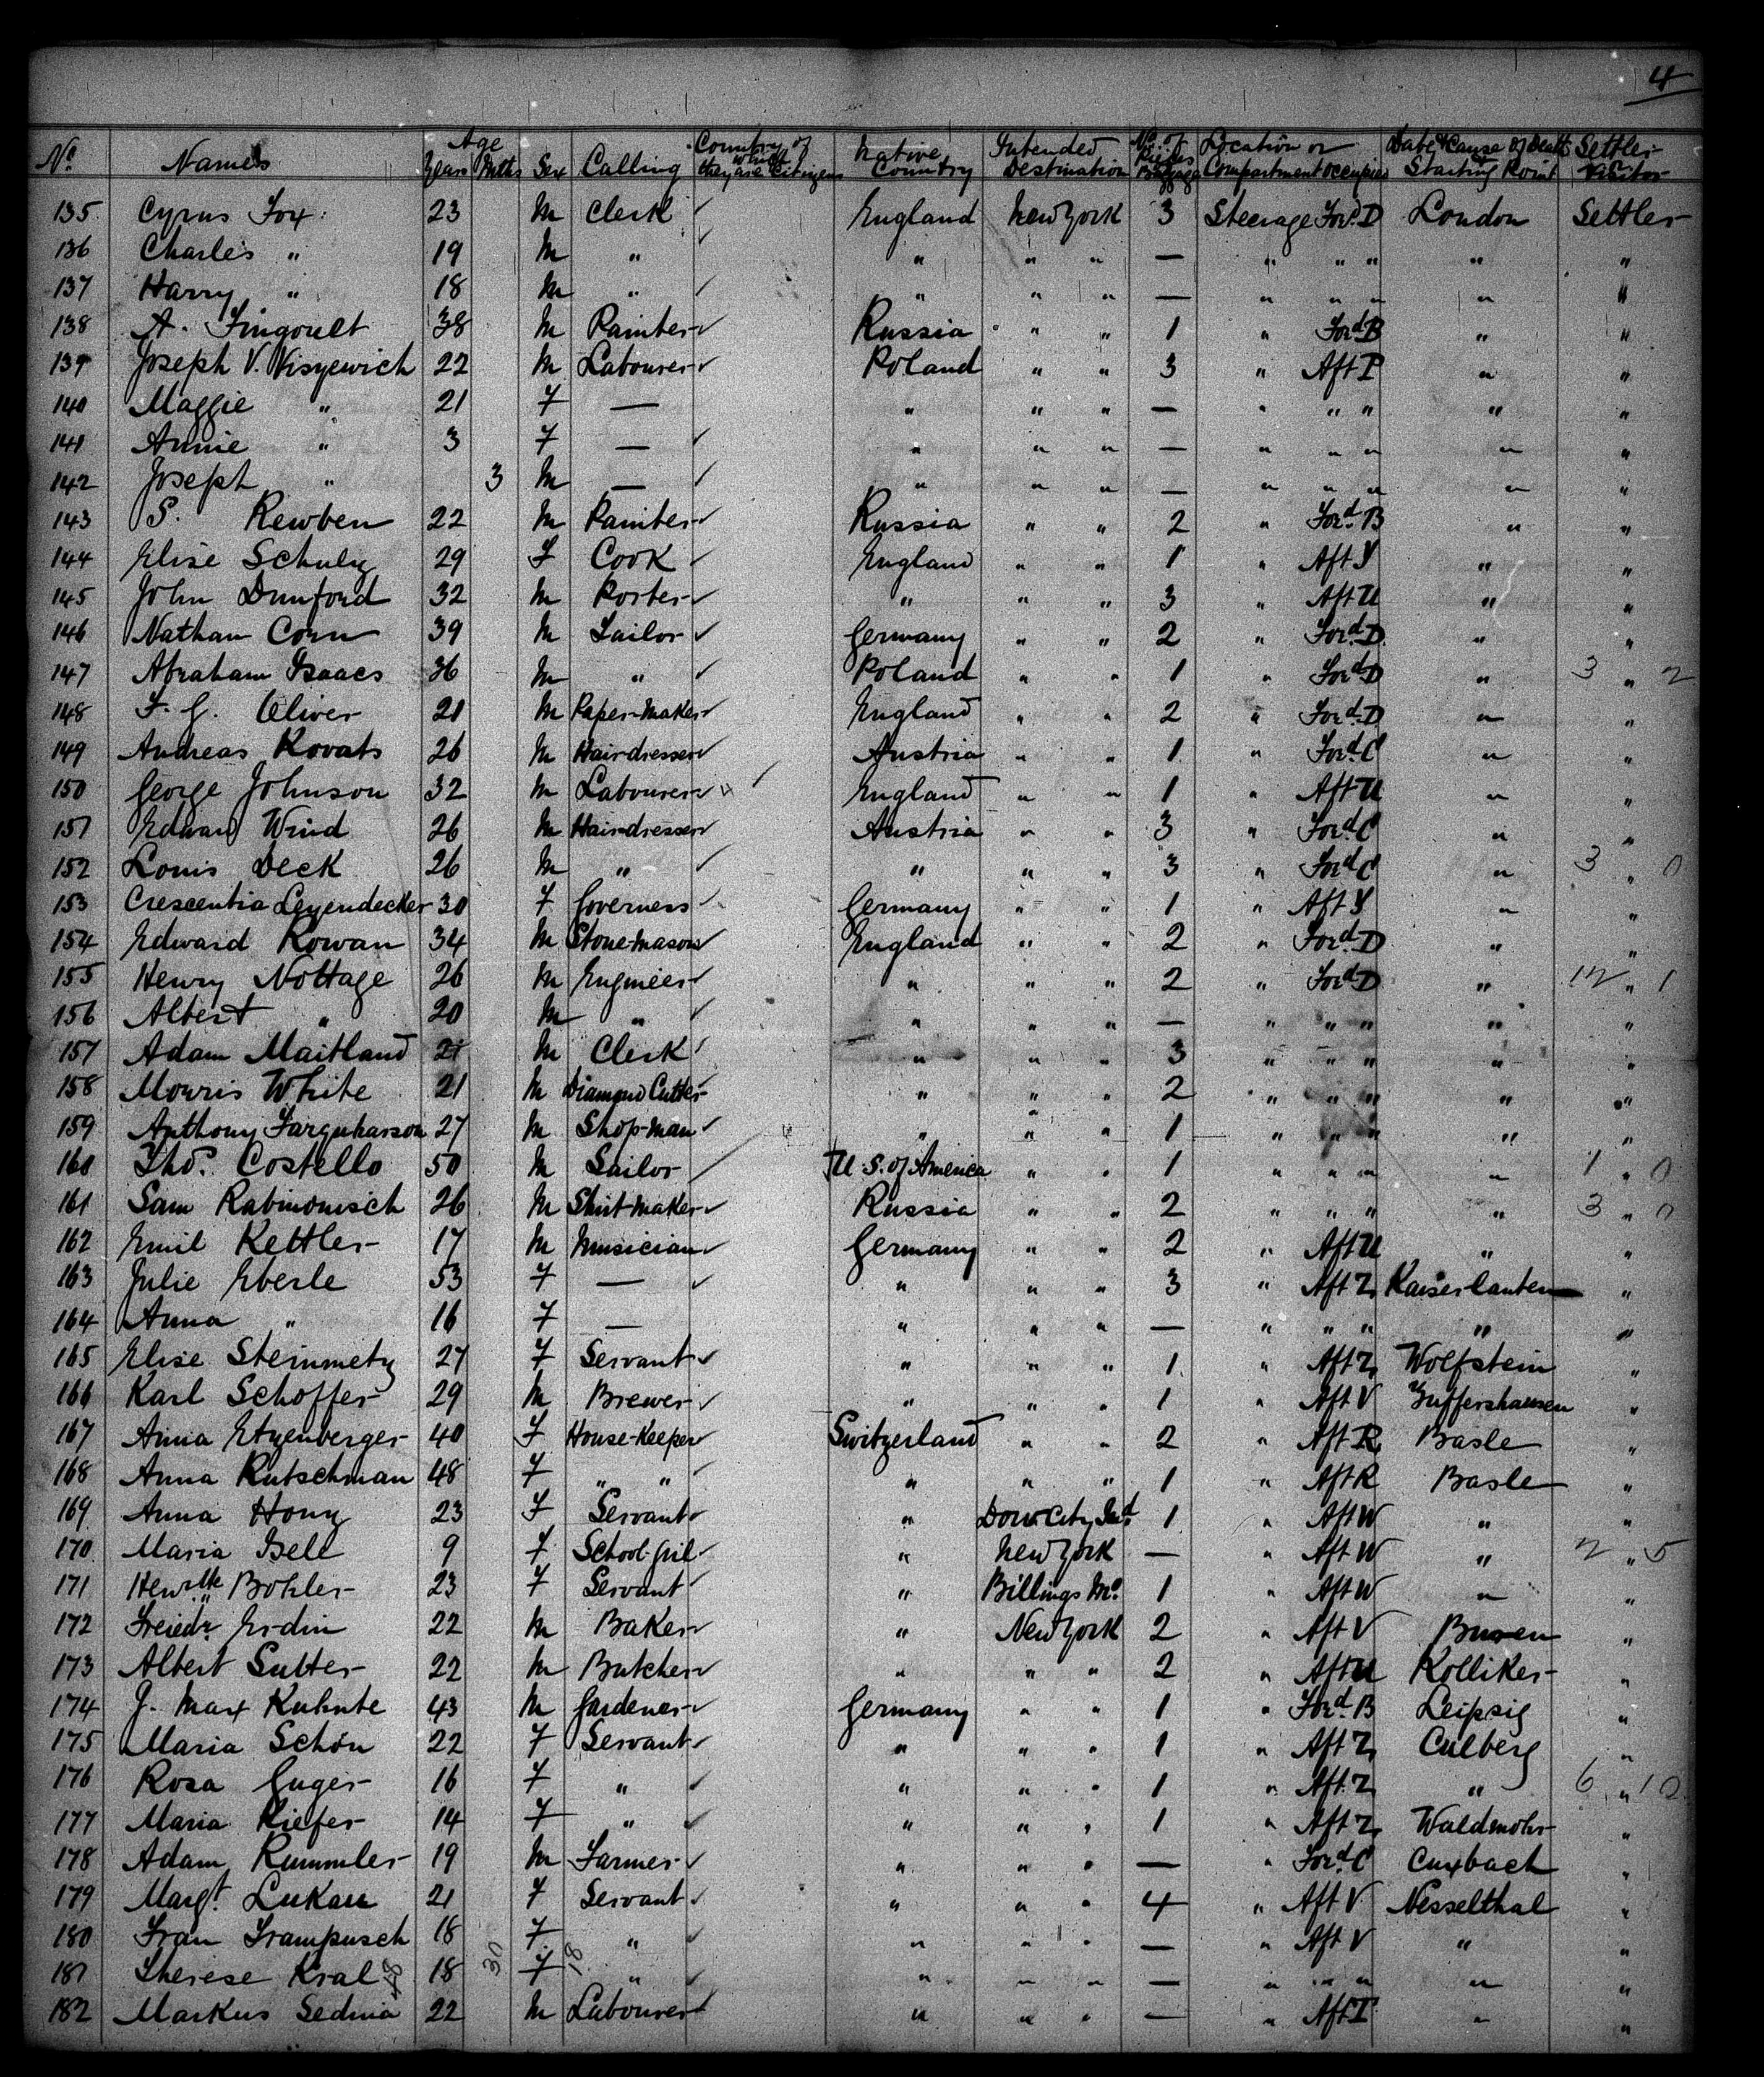 4
No. Names Age Years Mths Sex Calling Country of which they are Citizens Native Country Intended Destination No. of Pieces Baggage Location or Compartment occupied Date & cause of Death Starting Point Settler Visitor
135 Cyrus Fox 23 M Clerk ✓ England New York 3 Steerage Ford. D London Settler
136 Charles " 19 M " ✓ " " " — " " " " "
137 Harry " 18 M " ✓ " " " — " " " " "
138 A. Fingoult 38 M Painter ✓ Russia " " 1 " Ford B " "
139 Joseph V. Wisyewich 22 M Labourer ✓ Poland " " 3 " Aft P " "
140 Maggie " 21 F — " " " — " " " " "
141 Annie " 3 F — ✓ " " " — " " " " "
142 Joseph " 3 M — ✓ " " " — " " " " "
143 S. Rewben 22 M Painter ✓ Russia " " 2 " Ford. B " "
144 Elise Schulz 29 F Cook ✓ England " " 1 " Aft Y " "
145 John Dunford 32 M Porter ✓ " " " 3 " Aft U " "
146 Nathan Corn 39 M Tailor ✓ Germany " " 2 " Ford. D " "
147 Abraham Isaacs 36 M " ✓ Poland " " 1 " Ford D " 3 " 2
148 F. G. Oliver 21 M Paper-Maker ✓ England " " 2 " Ford. D " "
149 Andreas Kovats 26 M Hairdresser ✓ Austria " " 1 " Ford. C " "
150 George Johnson 32 M Labourer ✓ England " " 1 " Aft U " "
151 Edward Wind 26 M Hairdresser ✓ Austria " " 3 " Ford. C " "
152 Louis Deck 26 M " ✓ " " " 3 " Ford C " 3 " 0
153 Crescentia Leyendecker 30 F Governess ✓ Germany " " 1 " Aft Y " "
154 Edward Rowan 34 M Stone-Mason ✓ England " " 2 " Ford. D " "
155 Henry Nottage 26 M Engineer ✓ " " " 2 " Ford D " 12 " 1
156 Albert " 20 M " ✓ " " " — " " " " "
157 Adam Maitland 21 M Clerk ✓ " " " 3 " " " " "
158 Morris White 21 M Diamond Cutter " " " 2 " " " " "
159 Anthony Farquharson 27 M Shop-Man ✓ " " " 1 " " " " "
160 Thos. Costello 50 M Sailor U. S. of America " " 1 " " " " 1 " 0
161 Sam Rabinowisch 26 M Shirt-Maker ✓ Russia " " 2 " " " " 3 " 0
162 Emil Kettler 17 M Musician ✓ Germany " " 2 " Aft U " "
163 Julie Eberle 53 F — ✓ " " " 3 " Aft Z Kaiserlautern "
164 Anna " 16 F — " " " — " " " " "
165 Elise Steinmetz 27 F Servant ✓ " " " 1 " Aft Z Wolfstein "
166 Karl Schoffer 29 M Brewer ✓ " " " 1 " Aft V Zuffershausen "
167 Anna Etzenberger 40 F House-Keeper ✓ Switzerland " " 2 " Aft R Basle "
168 Anna Rutschman 48 F " " ✓ " " " 1 " Aft R Basle "
169 Anna Hong 23 F Servant ✓ " Dow City Ind. 1 " Aft W " "
170 Maria Isell 9 F School Girl ✓ " New York — " Aft W " 2 " 5
171 Henrtte Bohler 23 F Servant ✓ " Billings Mo. 1 " Aft W " "
172 Freiedr Erdin 22 M Baker ✓ " New York 2 " Aft V "
173 Albert Sutter 22 M Butcher ✓ " " " 2 " Aft U Kolliker "
174 J. Max Kuhnte 43 M Gardener ✓ Germany " " 1 " Ford. B Leipsig "
175 Maria Schön 22 F Servant ✓ " " " 1 " Aft Z Culberg "
176 Rosa Guger 16 F " ✓ " " " 1 " Aft Z " 6 " 10
177 Maria Kiefer 14 F " ✓ " " " 1 " Aft Z Waldmohr "
178 Adam Rummler 19 M Farmer ✓ " " " — " Ford. C Cuxbach "
179 Margt. Lukan 21 F Servant ✓ " " " 4 " Aft V Nesselthal "
180 Fran Trampusch 18 F " ✓ " " " — " Aft V " "
181 Therese Kral 18 30 F 18 " ✓ " " " — " " " " "
182 Markus Sedma 22 M Labourer ✓ " " " — " Aft T " "